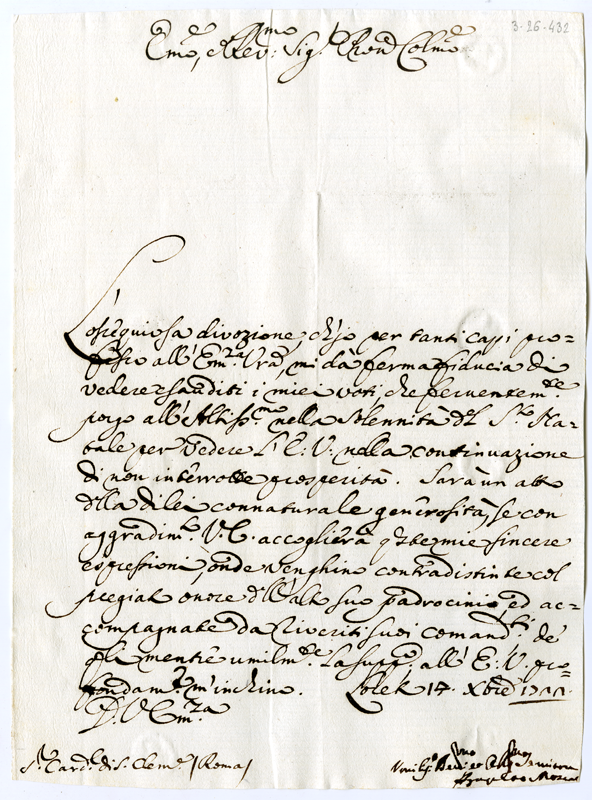 3-26-432
Em̃o, e Rev:mo Sig.r Pron̄ Colmo
L'ossequiosa divozione, ch'io per tanti capi pro=
fesso all'Em.za V̄ra, mi dà ferma fiducia di
vedere esauditi i miei voti, che ferventem.te
porgo all'Altiss.mo nella solennità del S.to Na=
tale per vedere L'E: V: nella continuazione
di non interrotte prosperità. Sarà un atto
della di lei connaturale generosità, se con
aggradim.to V. E. accoglierà queste mie sincere
espressioni, onde venghino contradistinte col
pregiato onore dell'alto suo padrocinio, ed ac=
compagnate da riveriti suoi comandi, de
gli mentre umilm.te La supp.co all'E: V: pro=
fondam.te m'inchino. 14. Xbre
D. V. Em.za
S.r Card.le di S. Clem.te (Roma)